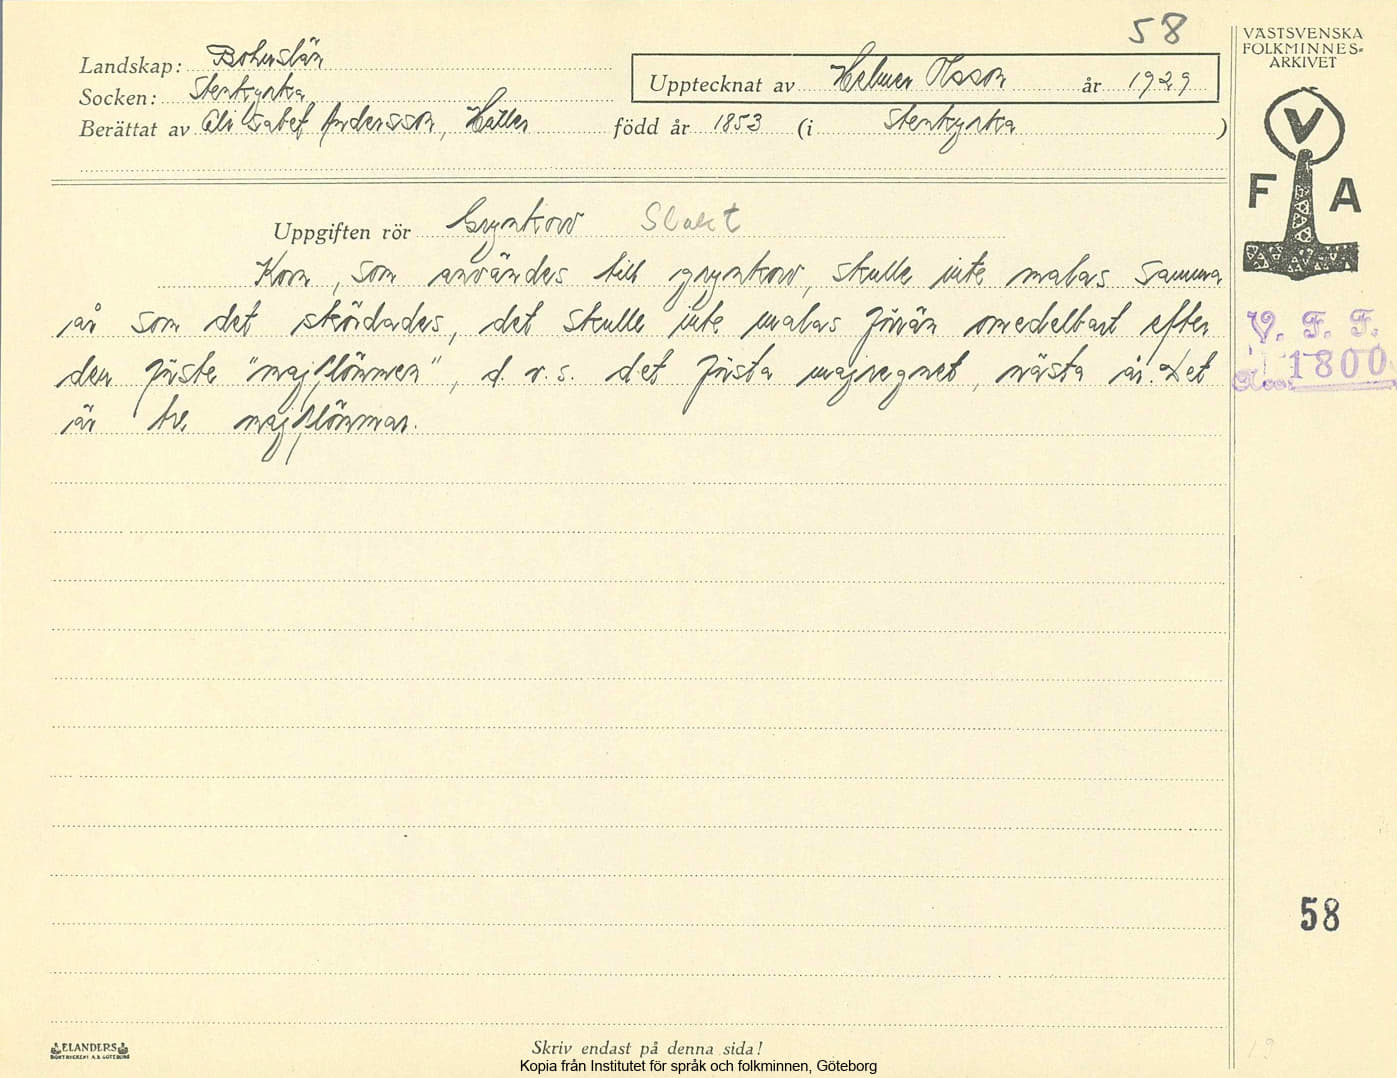 58
VÄSTSVENSKA
FOLKMINNES-
ARKIVET
Landskap: Bohuslän
Socken: Stenkyrka
Upptecknat av Helmer Olsson år 1929
Berättat av Elisabet Andersson, Häller född år 1853 (i Stenkyrka )
V
F A
Uppgiften rör Grynkorv Slakt
Korn, som användes till grynkorv, skulle inte malas samma
år som det skördades, det skulle inte malas förrän omedelbart efter
den förste "majflömmen", d.v.s. det första majregnet, nästa år. Det
är tre majflömmar.
V. F. F.
1800
58
ELANDERS
BOKTRYCKERI A.B. GÖTEBORG
Skriv endast på denna sida!
Kopia från Institutet för språk och folkminnen, Göteborg